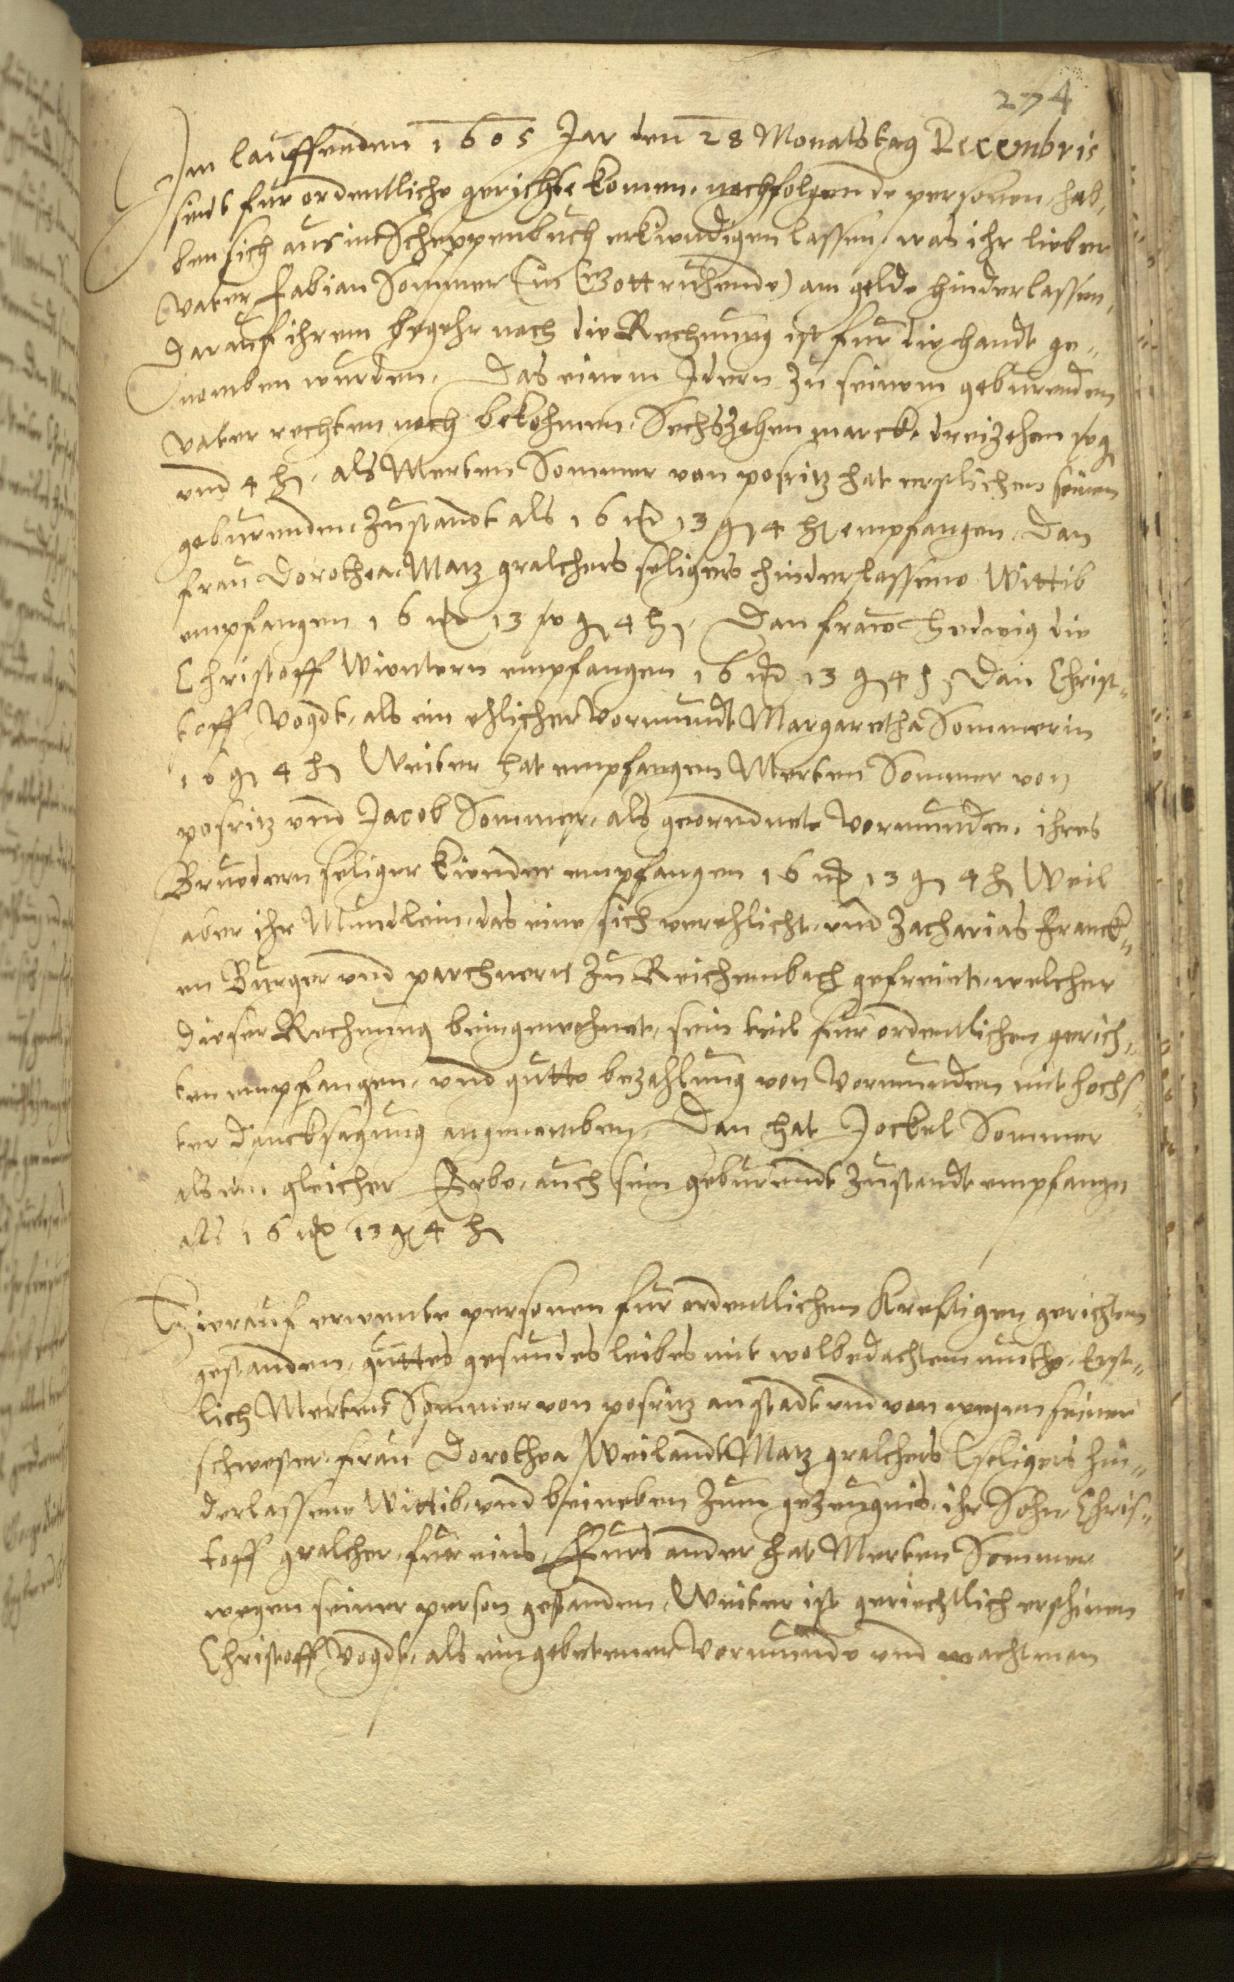 274
Im lauffenden 1605 Jar den 28 Monatstag Decembris
sindt fur ordentliche gerichte komen, nachfolgende personen, hab,
ben sich aus im Scheppenbuch erkundigen lassen, was ihr lieber
Vater Fabian Sommer (in Gott ruhende) am gelde hinderlassen,
Darauf ihrem begehr nach die Rechnung ist fur die handt ge-
nomben wurden, Das einem Idern zu seinem geburenden
Vater rechten noch bekohmen, Sechszehen marck, dreizehen
und 4 h, als Merten Sommer von posritz hat erstlichen seinen
geburenden Zustandt als 16 13 g 4 h empfangen, Dan
frau Dorothea, Matz gralchers seligers hinderlassene Wittib
empfangen 16 13 g 4 h, Dan fraw Hedwig die
Christoff Wientern empfangen 16 13 g 4 h, Dan Christ-
toff Vogdt, als ein ehlicher Vormundt Margaretha Sommerin
16 g 4 h Weiter hat empfangen Merten Sommer von
posritz und Jacob Sommer, als geordnete Vormunden, ihres
Bruedern seliger kiender empfangen 16 13 g 4 h Weil
aber ihr Mundlein, das eine sich verehlicht, und Zacharias Franck-
en Burger und parchner zu Reichenbach gefreiet, welcher
dieser Rechnung beingewohnet, sein teil fur ordentlichen gerich-
ten empfangen, und gutte bezahlung von Vormunden mit hochs-
ter dancksagung angenomben, Dan hat Jockel Sommer
als ein gleicher Erbe, auch sein geburendt Zustandt empfangen
als 16 13 g 4 h
Hierauf erwente personen fur ordentlichen Kreftigen gerichten
gestanden, guttes gesundes leibes mit wolbedachtem muthe, Erst-
lich Merten Sommer von posritz anstadt und von wegen seiner
schwester, frau Dorothea Weilandt Matz gralchers seligers hin-
derlassene Wittib, und beineben zum gezeugnis, ihr Sohn Chris-
toff gralcher, fur eins, Furs ander hat Merten Sommer
wegen seiner person gestanden, Weiter ist gerichtlich erschinen
Christoff Vogdt, als ein gebetener Vormunde und machtman